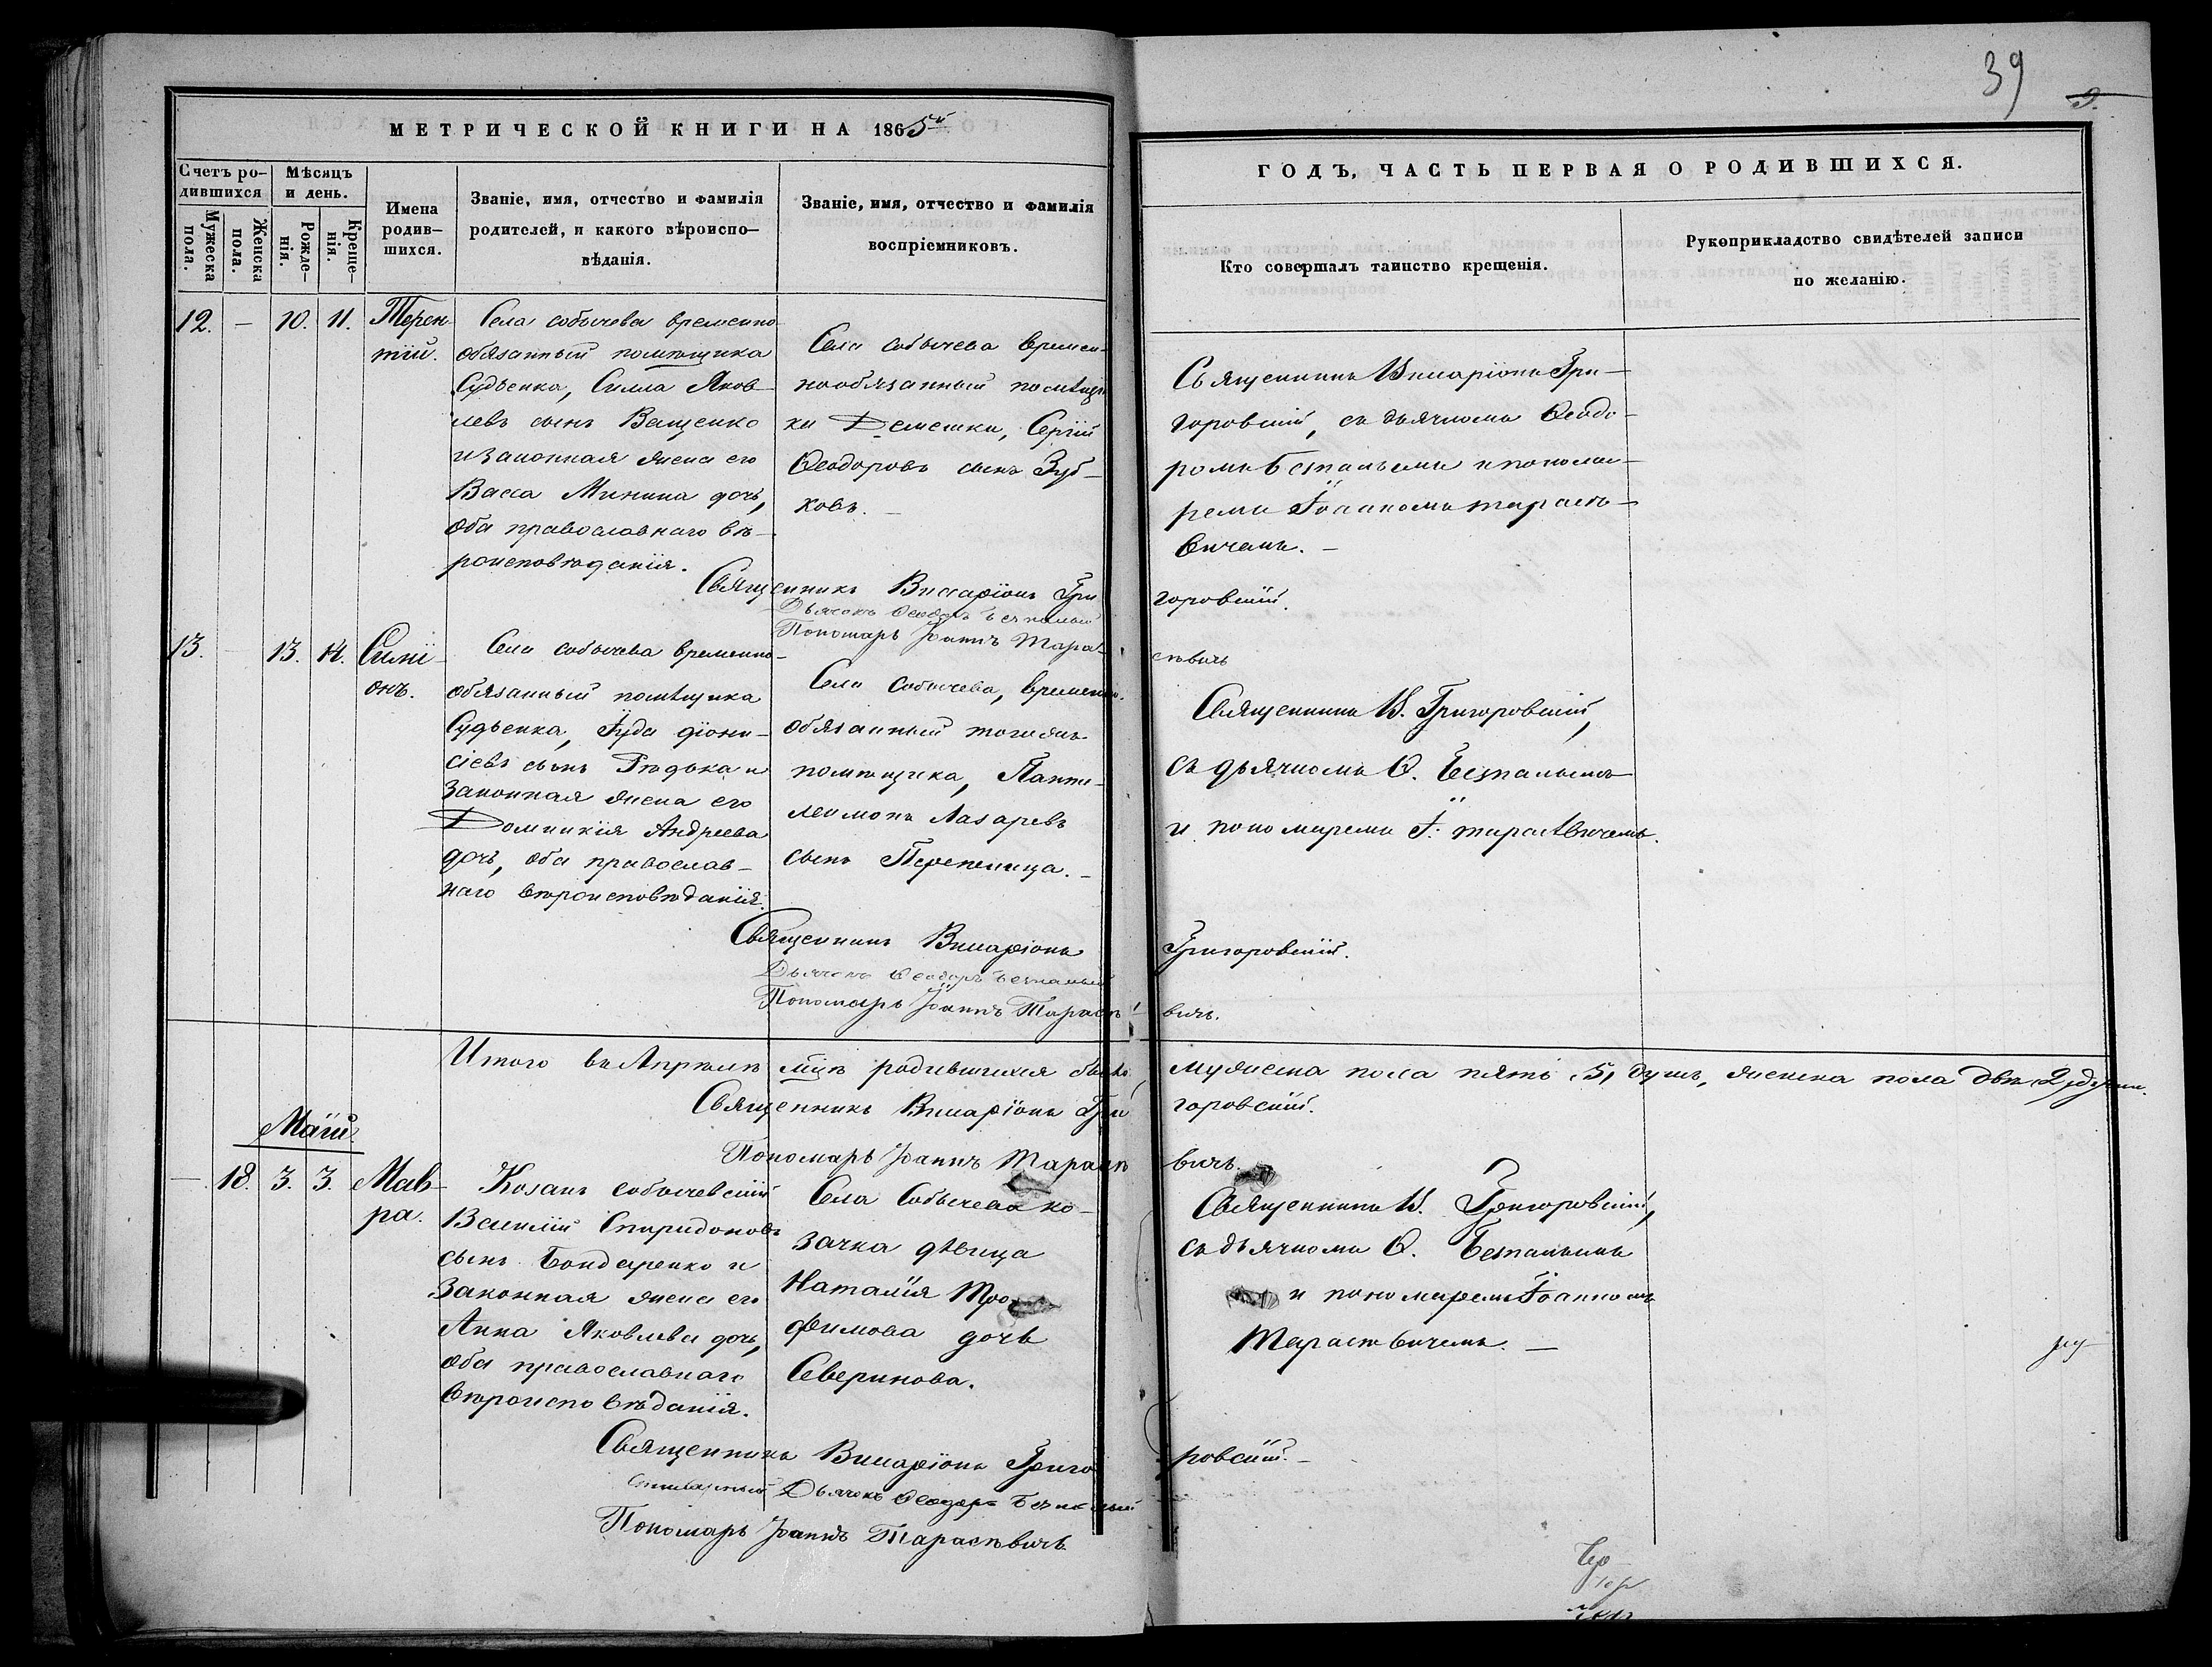 39
9.
МЕТРИЧЕСКОЙ КНИГИ НА 1865й
ГОДЪ, ЧАСТЬ ПЕРВАЯ О РОДИВШИХСЯ.
Счетъ ро-
дившихся
Мужеска
пола.
Женска
пола.
Мѣсяцъ
и день.
Рожде-
нія.
Креще-
нія.
Имена
родив-
шихся.
Званіе, имя, отчество и фамилія
родителей, и какого вѣроиспо-
вѣданія.
Званіе, имя, отчество и фамилія
воспріемниковъ.
Кто совершалъ таинство крещенія.
Рукоприкладство свидѣтелей записи
по желанію.
12. — 10. 11.
Терен
тій.
Села Собычева временно
обязанный помѣщика
Судьенка, Силла Яков-
левъ сынъ Ващенко
и законная жена его
Васса Минина дочь,
оба православнаго вѣ-
роисповѣданія.
Села Собычева времен-
нообязанный помѣщи
ки Демешки, Сергій
Ѳеодоровъ сынъ Зуб-
ковъ. —
Священникъ Виссаріонъ Гри-
горовскій, съ дьячкомъ Ѳеодо-
ромъ Безпалымъ и понома-
ремъ Іоанномъ Тарасѣ-
вичемъ. —
Священникъ Виссаріонъ Гри
горовскій.
Дьячокъ Ѳеодоръ Безпалый
Пономарь Іоаннъ Тара-
сѣвичъ
13. — 13. 14.
Симі-
онъ.
Села Собычева временно-
обязанный помѣщика
Судьенка, Іуда Діони-
сіевъ сынъ Рѣдька и
законная жена его
Домникія Андреева
дочь, оба православ-
наго вѣроисповѣданія.
Села Собычева, временно.
обязанный тогожъ
помѣщика, Панте-
леимонъ Лазаревъ
сынъ Перепе
Священникъ В. Григоровскій,
съ дьячкомъ Ѳ. Безпалымъ
и пономаремъ І. Тарасѣвичемъ.
Священникъ Виссаріонъ
Григоровскій.
Дьячокъ Ѳеодоръ Безпалый
Пономарь Іоаннъ Тарасѣ
вичъ.
Итого въ Апрѣлѣ мцѣ родившихся было
мужеска пола пять 5, душъ, женска пола двѣ 2, души.
Священникъ Виссаріонъ Гри
горовскій.
Пономарь Іоаннъ Тарасѣ
вичъ.
Май.
— 18. 3. 3.
Мав-
ра.
Козакъ собычевскій
Василій Спиридоновъ
сынъ Бондаренко и
законная жена его
Анна Яковлева дочь,
оба православнаго
вѣроисповѣданія.
Села Собычева ко-
зачка дѣвица
Наталія Тро-
фимова дочь
Северинова.
Священникъ В. Григоровскій,
съ дьячкомъ Ѳ. Безпалымъ
и пономаремъ Іоанномъ
Тарасѣвичемъ. —
Священникъ Виссаріонъ Григо
ровскій. —
Дьячокъ Ѳеодоръ Безпалый
Пономарь Іоаннъ Тарасѣвичъ